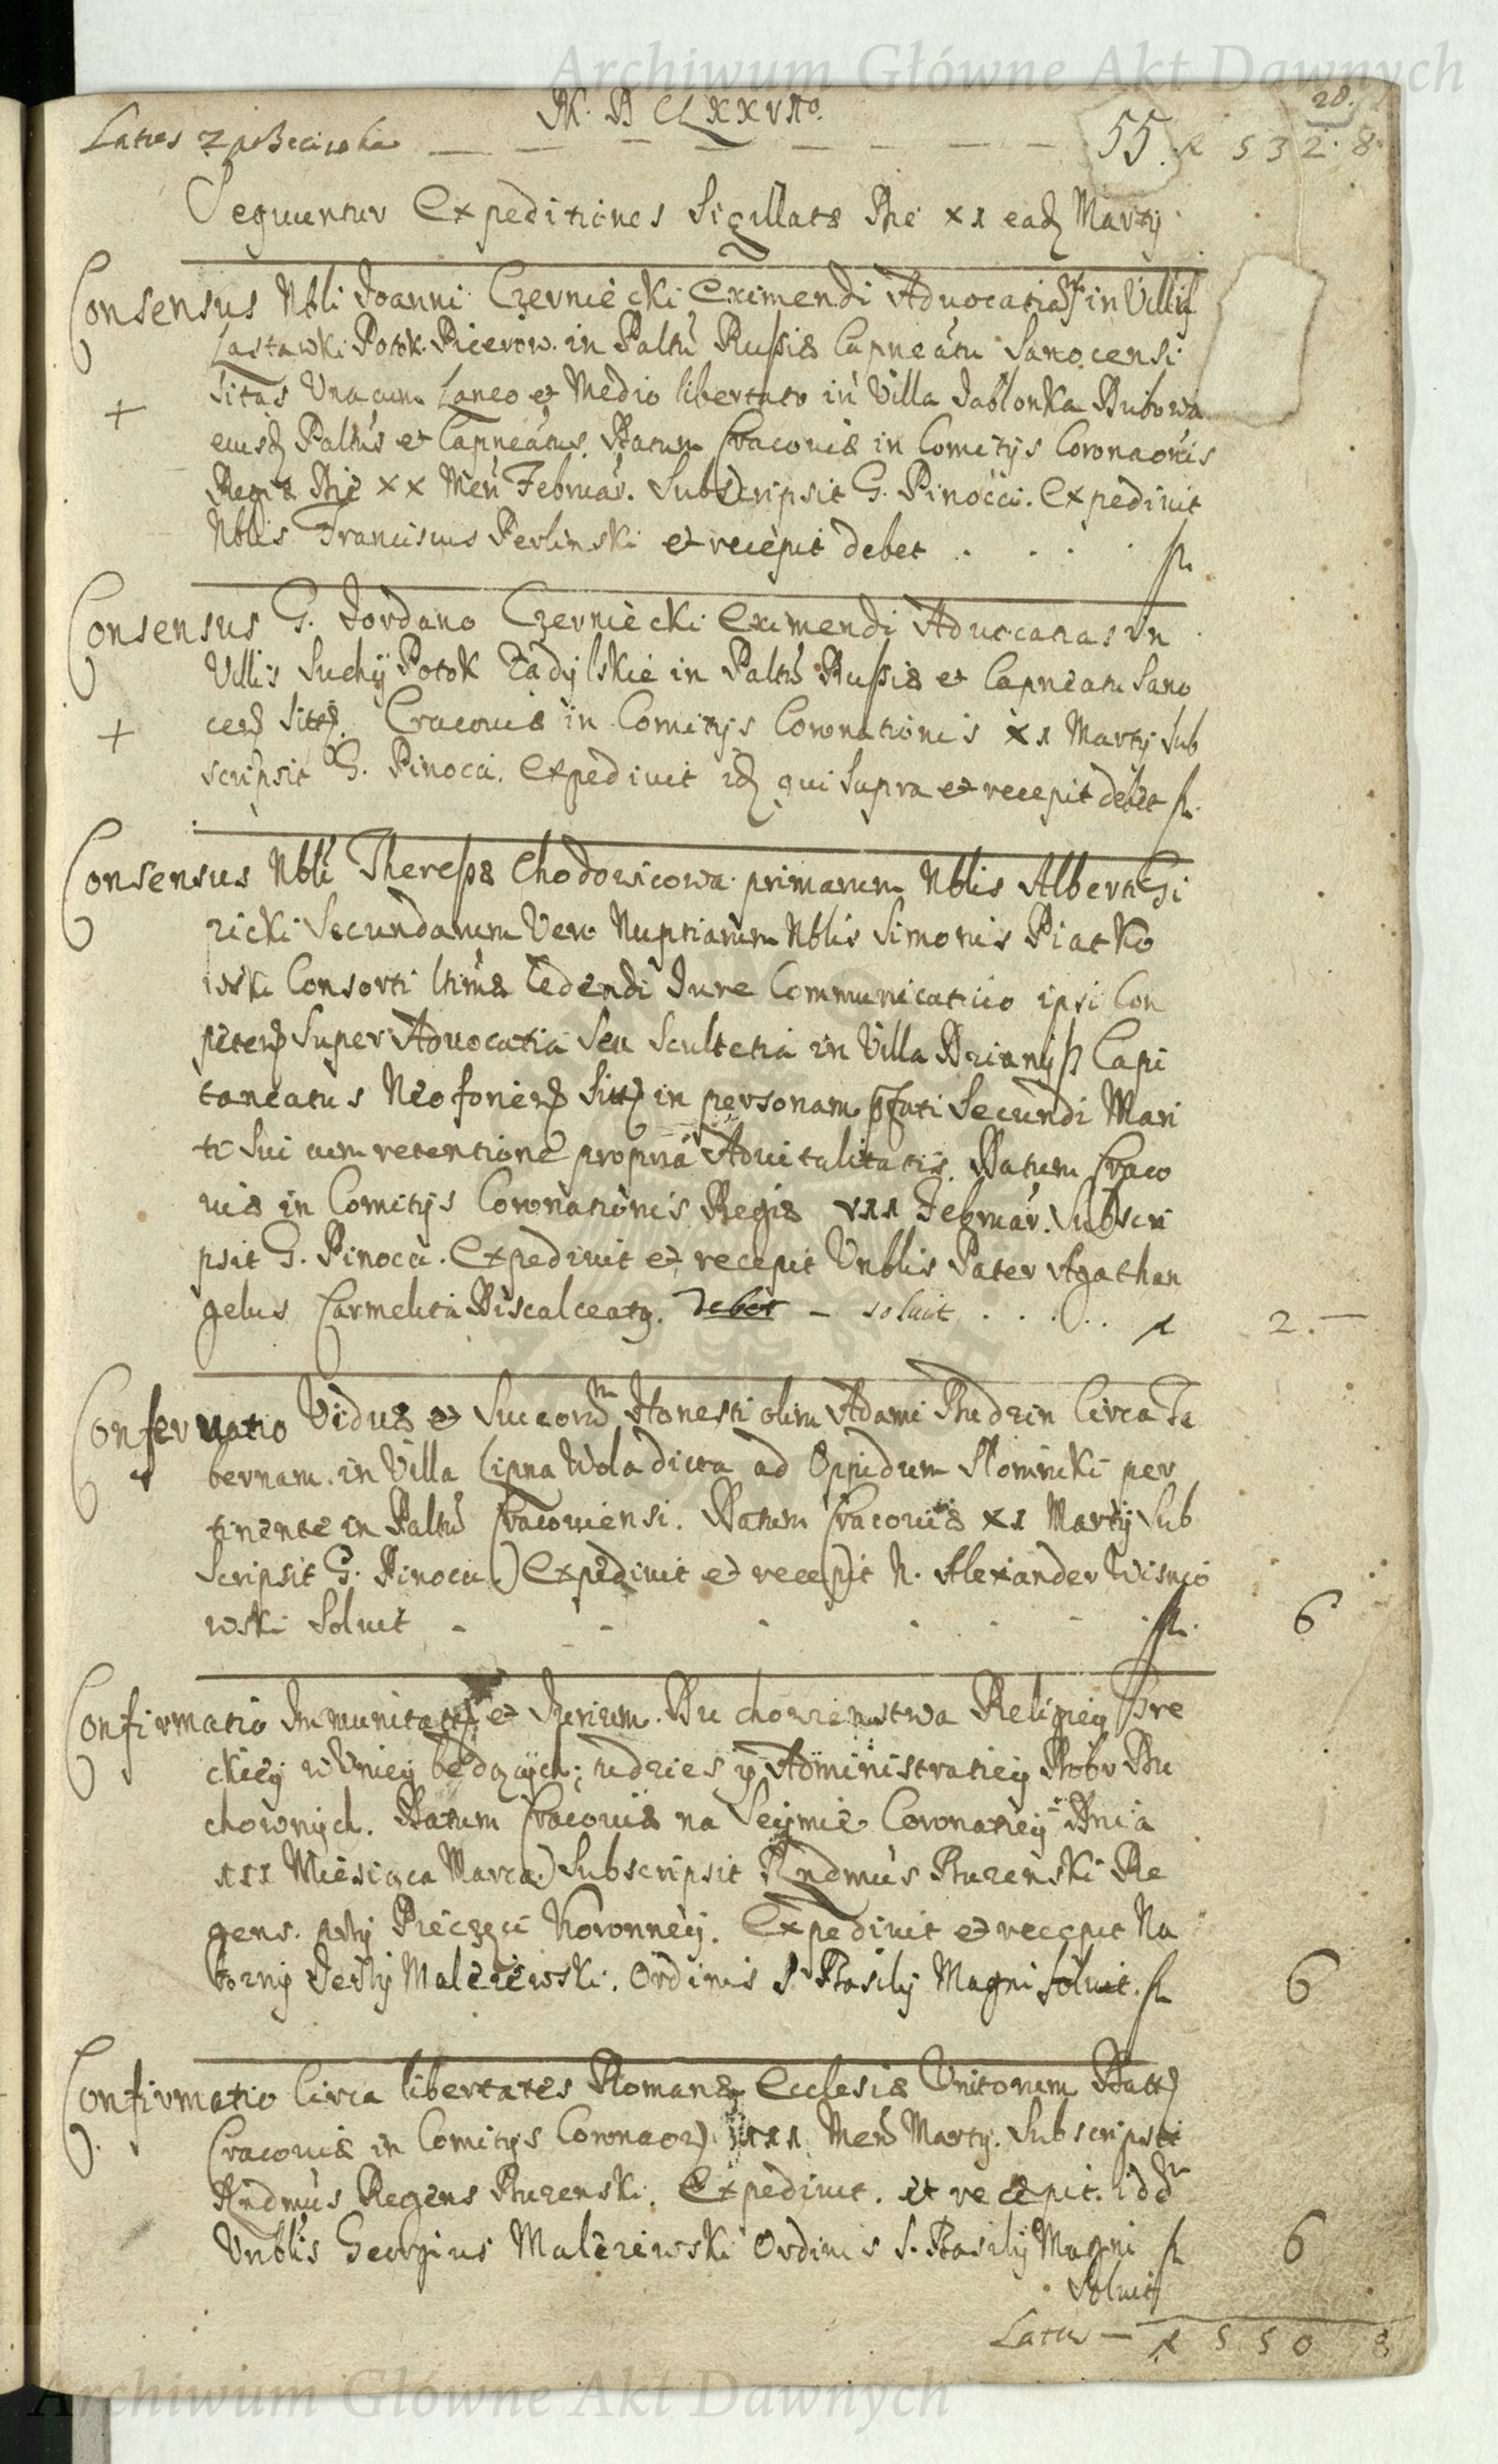 Archiwum Główne Akt Dawnych
M. D CLXXVIto.
28.
Latus z przeciwka — — — — — — — — 55. f 532. 8
Sequuntur Expeditiones Sigillatae Die XI eadē Martij
Consensus Nbli Joanni Czerniecki Eximendi Advocatias in Villis
Lastawki Potok Riczerow. in Paltu Russiae Capneatu Sanocensi
sitas Unacum Laneo et Medio libertato in Villa Jablonka Dubowa
eiusd Paltus et Capneatus. Datum Cracoviae in Comitijs Coronaonis
Regiae Die XX Men Februar. Subscripsit G. Pinocci. Expedivit
Nblis Franciscus Perlinski et recepit debet . . . . fl.
Consensus G. Jordano Czerniecki Eximendi Advocatias in
Villis Suchij Potok Zadÿlskie in Paltu Russiae et Capneatu Sano
cen sitt. Cracoviae in Comitijs Coronationis XI Martij Sub
scripsit G. Pinocci. Expedivit id qui supra et recepit debet fl.
Consensus Nbli Theressae Chodowicowa primarum Nblis Alberti Gi
zicki Secundarum Vero Nuptiarum Nblis Simonis Piatko
wski Consorti ltimae Cedendi Jure Communicativo ipsi Con
peten super Advocatia seu Scultetia in Villa Brianÿß Capi
taneatus Neoforien sitt in personam pfati Secundi Mari
ti sui cum retentione propria Advitalitatis. Datum Craco
viae in Comitijs Coronationis Regiae VII Februar. Subscri
psit G. Pinocci. Expedivit et recepit Vnblis Pater Agathan
gelus Carmelita Discalceatq. debet – soluit . . . . . f 2. —
Conservatio Viduae et Succorum Honesti olim Adami Budzin Circa Ta
bernam in Villa Lipna Wola dicta ad Oppidum Slomnicki per
tinente in Paltu Cracoviensi. Datum Cracoviae XI Martij Sub
scripsit G. Pinocci) Expedivit et recepit N. Alexander Wisnio
wski Soluit - - - - - fl. 6
Confirmatio Immunitatis et Jurium Duchowienstwa Religiey Gre
ckiey w Vniey będących; udzies y Administratiey Dobr Du
chownÿch. Datum Cracoviae na Seÿmie Coronatieÿ Dnia
III Miesiąca Marca.) Subscripsit Rndmus Buzenski Re
gens. przÿ Pieczęci Koronneÿ. Expedivit et recepit Na
bożnÿ Jerzÿ Malezewski. Ordinis S. Basilij Magni soluit. fl 6
Confirmatio Circa libertates Romanae Ecclesiae Unitorum Datt
Cracoviae in Comitijs Coronaon III Men Martij. Subscripsit
Rndmus Regens Buzenski. Expedivit. et recepit. idd
Vnblis Georgius Malezewski Ordinis S. Basilij Magni fl 6
Soluit
Latus — f 550 8
Archiwum Główne Akt Dawnych